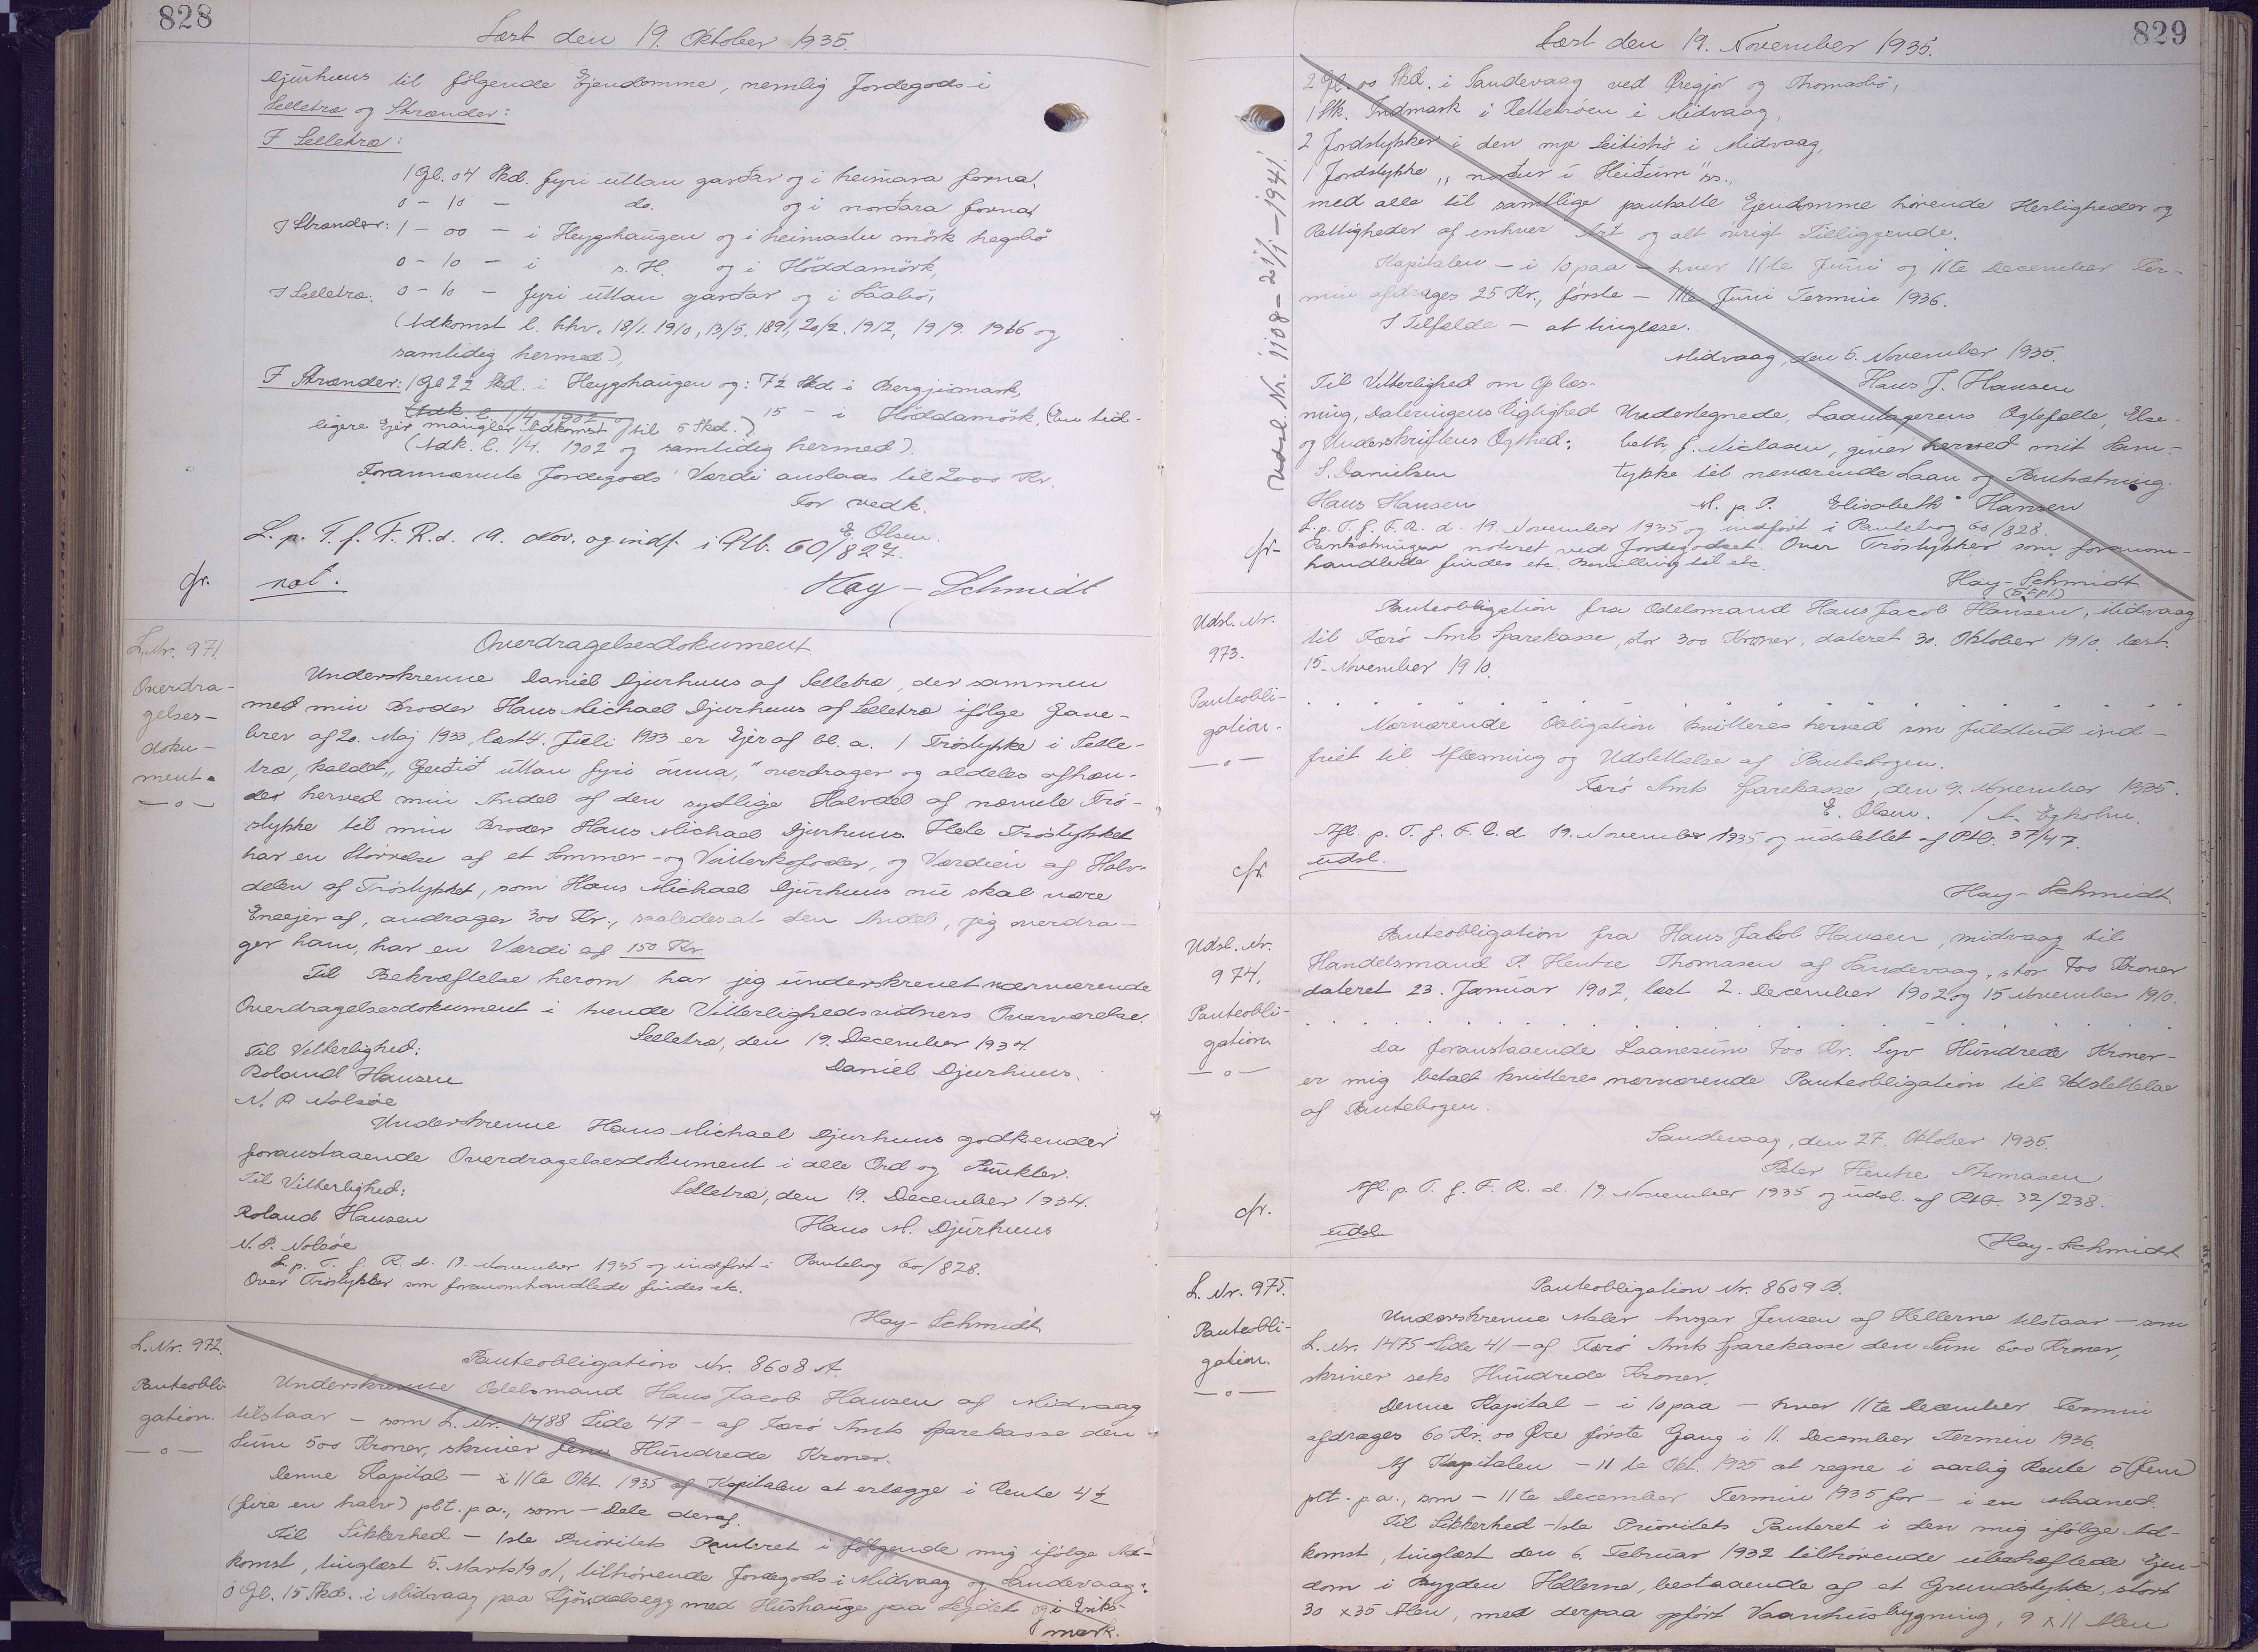 828
Læst den 19. Oktober 1935.
Djurhuus til følgende Ejendomme, nemlig Jordegods i
Selletræ og Strænder:
F Selletræ:
1 Gl. 04 Skd. fyri uttan garðar og i heimara forna,
0 - 10 - do. og i norðara forna,
I Strænder: 1 - 00 - i Heygshaugen og i heimastu mörk hegsbø
0 - 10 - i s. H. og i Höddamörk,
I Selletræ: 0 - 10 - fyri uttan garðar og i Láabø,
(Adkomst l. hhv. 18/1. 1910, 13/5. 1891, 20/2. 1912, 19/9. 1916 og
samtidig hermed),
F Strænder: 1 Gl 22 Skd. i Heygshaugen og: 7½ Skd i Bergjismark,
(Adk. l. 1/4. 1902 15 - i Höddamörk, (Den tid-
ligere Ejer mangler Adkomst til 5 Skd.)
(Adk. l. 1/4. 1902 og samtidig hermed).
Forannævnte Jordegods' Værdi anslaas til 2000 Kr.
For vedk.
E. Olsen.
L. p. T. f. F. R. d. 19. Nov. og indf. i Ptb. 60/827.
cfr. not. Hay-Schmidt
L. Nr. 971.
Overdra-
gelses-
doku-
ment.
—o—
Overdragelsesdokument.
Underskrevne Daniel Djurhuus af Selletræ, der sammen
med min Broder Hans Michael Djurhuus af Selletræ ifølge Gave-
brev af 20. Maj 1933, læst 4. Juli 1933 er Ejer af bl. a. 1 Tröstykke i Selle-
træ, kaldt „Gerðið uttan fyri ánna," overdrager og aldeles afhæn-
der herved min Andel af den sydlige Halvdel af nævnte Trö-
stykke til min Broder Hans Michael Djurhuus. Hele Tröstykket
har en Störrelse af et Sommer- og Vinterkofoder, og Værdien af Halv-
delen af Tröstykket, som Hans Michael Djurhuus nu skal være
Eneejer af, andrager 300 Kr., saaledes at den Andel, jeg overdra-
ger ham, har en Værdi af 150 Kr.
Til Bekræftelse herom har jeg underskrevet nærværende
Overdragelsesdokument i tvende Vitterlighedsvidners Overværelse.
Selletræ, den 19. December 1934.
Til Vitterlighed: Daniel Djurhuus.
Roland Hansen
N. P. Nolsøe
Underskrevne Hans Michael Djurhuus godkender
foranstaaende Overdragelsesdokument i alle Ord og Punkter.
Til Vitterlighed: Selletræ, den 19. December 1934.
Roland Hansen Hans M. Djurhuus
N. P. Nolsøe
L. p. T. f. R. d. 19. November 1935 og indført i Pantebog 60/828.
Over Tröstykker som foranomhandlede findes etc.
Hay-Schmidt
L. Nr. 972.
Panteobli-
gation.
—o—
Panteobligation Nr. 8608 A.
Underskrevne Odelsmand Hans Jacob Hansen af Midvaag
tilstaar - som L. Nr. 1488 Side 47 - af Færö Amts Sparekasse den
Sum 500 Kroner, skriver fem Hundrede Kroner.
Denne Kapital - i 11te Okt. 1935 af Kapitalen at erlægge i Rente 4½
(fire en halv) pCt. p.a., som - Dele deraf.
Til Sikkerhed - 1ste Prioritets Panteret i følgende mig ifølge Ad-
komst, tinglæst 5. Marts 1901, tilhørende Jordegods i Midvaag og Sandevaag:
0 Gl. 15 Skd. i Midvaag paa Kjórdalsegg med Hushauge paa Lejdet og i Eriks-
mark.
829
Læst den 19. November 1935.
Udsl. Nr. 1108 - 21/1 - 1941.
2 Gl. 00 Skd. i Sandevaag ved Öregjov og Thomasbö,
1 Stk. Indmark i Rettetröen i Midvaag,
2 Jordstykker i den nye Leitisbø i Midvaag,
1 Jordstykke „norður i Heiðum"
med alle til samtlige pantsatte Ejendomme hörende Herligheder og
Rettigheder af enhver Art og alt övrigt Tilliggende.
Kapitalen - i 10 paa - hver 11te Juni og 11te December Ter-
min afdrages 25 Kr., förste - 11te Juni Termin 1936.
I Tilfælde - at tinglæse.
Midvaag, den 5. November 1935.
Til Vitterlighed om Oplæs- Hans J. Hansen
ning, Dateringens Rigtighed Undertegnede, Laantagerens Ægtefælle, Else-
og Underskriftens Ægthed: beth J. Niclasen, giver herved mit Sam-
S. Danielsen tykke til nærværende Laan og Pantsætning.
Hans Hansen M. p. P. Elisabeth Hansen
L. p. T. f. F. R. d. 19. November 1935 og indført i Pantebog 60/828.
cfr. Pantsætningen noteret ved Jordegodset. Over Tröstykker som foranom-
handlede findes etc. Bevilling til etc.
Hay-Schmidt
Udsl. Nr.
973.
Panteobli-
gation.
—o—
Panteobligation fra Odelsmand Hans Jacob Hansen, Midvaag
til Færö Amts Sparekasse, stor 300 Kroner, dateret 30. Oktober 1910. læst.
15. November 1910.
Nærværende Obligation kvitteres herved som fuldtud ind-
friet til Aflæsning og Udslettelse af Pantebogen.
Færö Amts Sparekasse, den 9. November 1935.
E. Olsen. / A. Egholm.
Afl. p. T. f. F. R. d. 19. November 1935 og udslettet af Ptb. 37/47.
cfr. udsl.
Hay-Schmidt.
Udsl. Nr.
974.
Panteobli-
gation
—o—
Panteobligation fra Hans Jakob Hansen, Midvaag til
Handelsmand P. Hentze Thomasen af Sandevaag, stor 700 Kroner
dateret 23. Januar 1902, læst 2. December 1902 og 15 November 1910.
Da foranstaaende Laanesum 700 Kr. Syv Hundrede Kroner-
er mig betalt kvitteres nærværende Panteobligation til Udslettelse
af Pantebogen.
Sandevaag, den 27. Oktober 1935.
Peter Hentze Thomasen
Afl. p. T. f. F. R. d. 19. November 1935 og udsl. af Ptb. 32/238.
cfr. udsl.
Hay-Schmidt
L. Nr. 975.
Panteobli-
gation.
—o—
Panteobligation Nr. 8609 B.
Underskrevne Maler Ansgar Jensen af Hellerne tilstaar - som
L. Nr. 1475 Side 41 - af Færö Amts Sparekasse den Sum 600 Kroner,
skriver seks Hundrede Kroner.
Denne Kapital - i 10 paa - hver 11te December Termin
afdrages 60 Kr. 00 Øre förste Gang i 11. December Termin 1936.
Af Kapitalen - 11te Okt. 1935 at regne i aarlig Rente 5 (fem)
pCt. p.a., som - 11te December Termin 1935 for - i en Maaned.
Til Sikkerhed - 1ste Prioritets Panteret i den mig ifölge Ad-
komst, tinglæst den 6. Februar 1932 tilhörende ubehæftede Ejen-
dom i Bygden Hellerne, bestaaende af et Grundstykke, stort
30 x 35 Alen, med derpaa opført Vaanhusbygning, 9 x 11 Alen